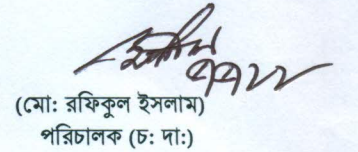 (মো: রফিকুল ইসলাম)
পরিচালক (চ: দা:)